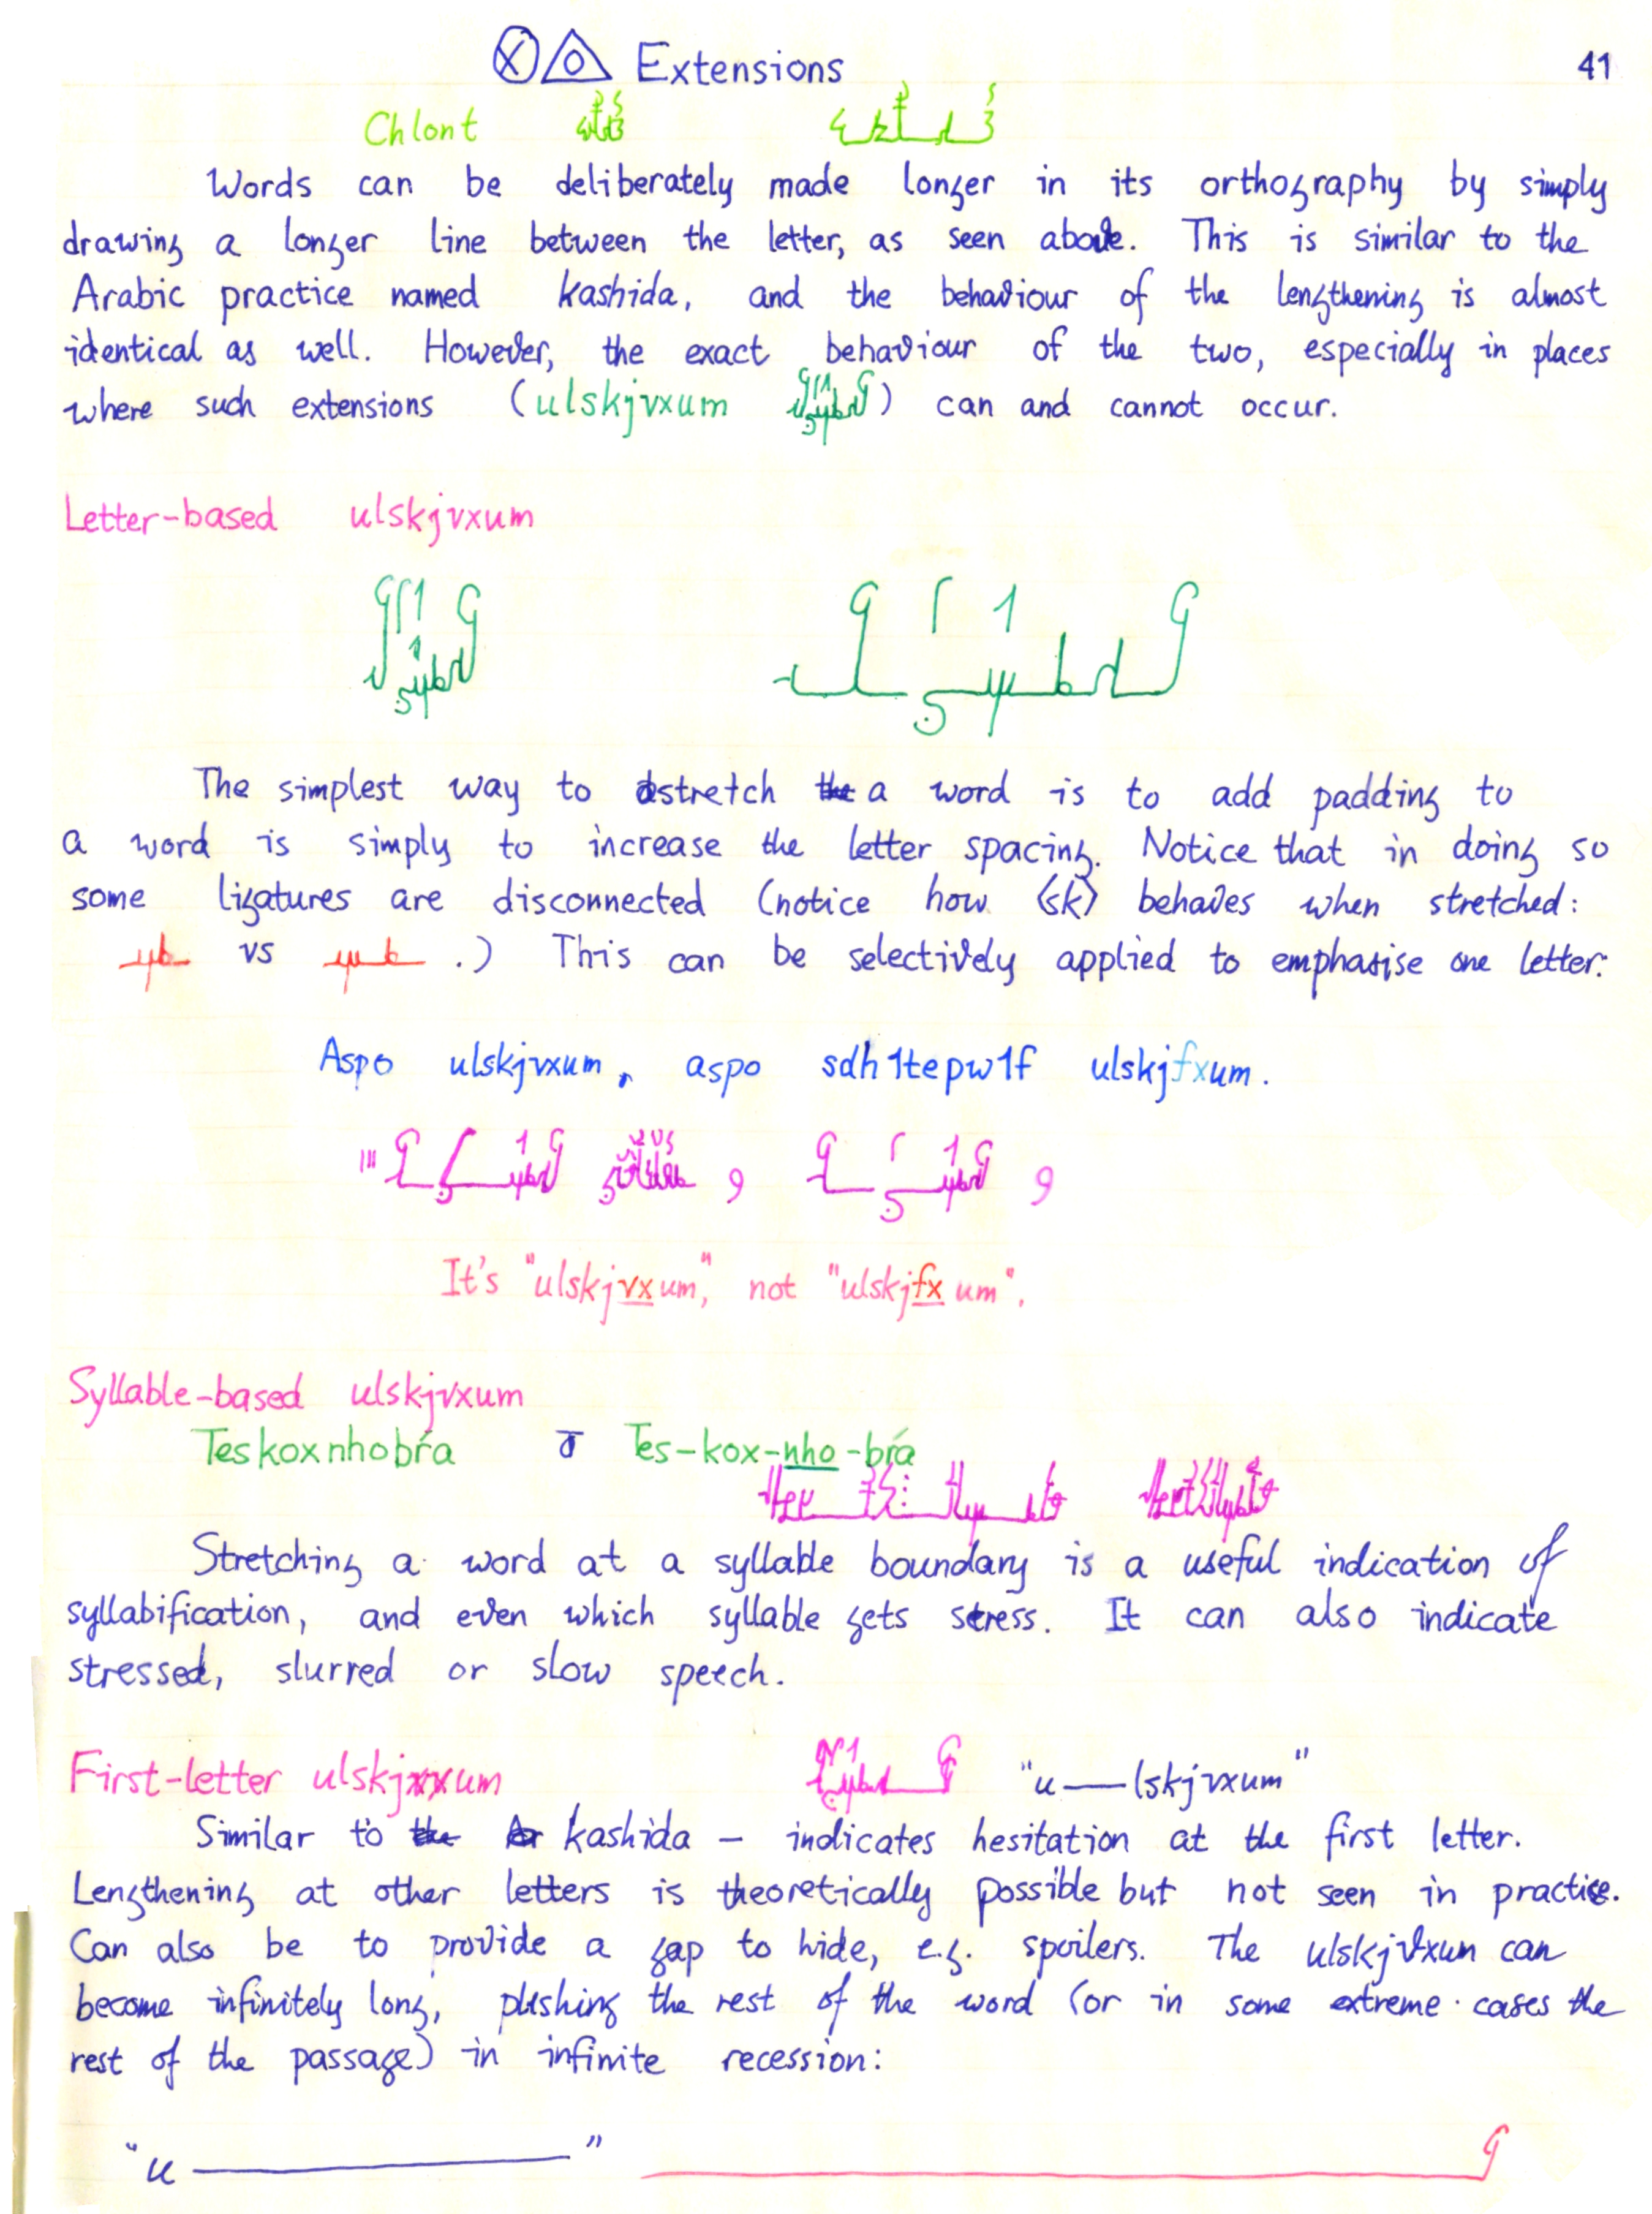 Extensions 41
Chlont
Words can be deliberately made longer in its orthography by simply
drawing a longer line between the letter, as seen above. This is similar to the
Arabic practice named kashida, and the behaviour of the lengthening is almost
identical as well. However, the exact behaviour of the two, especially in places
where such extensions (ulskjvxum ) can and cannot occur.
Letter-based ulskjvxum
The simplest way to stretch a word is to add padding to
a word is simply to increase the letter spacing. Notice that in doing so
some ligatures are disconnected (notice how ⟨sk⟩ behaves when stretched:
vs .) This can be selectively applied to emphasise one letter:
Aspo ulskjvxum, aspo sdh1tepw1f ulskjfxum.
It's "ulskjvxum," not "ulskjfxum".
Syllable-based ulskjvxum
Teskoxnhobŕa Tes-kox-nho-bŕa
Stretching a word at a syllable boundary is a useful indication of
syllabification, and even which syllable gets stress. It can also indicate
stressed, slurred or slow speech.
First-letter ulskjvxum "u—lskjvxum"
Similar to the kashida – indicates hesitation at the first letter.
Lengthening at other letters is theoretically possible but not seen in practise.
Can also be to provide a gap to hide, e.g. spoilers. The ulskjvxum can
become infinitely long, pushing the rest of the word (or in some extreme cases the
rest of the passage) in infinite recession:
"u ———"